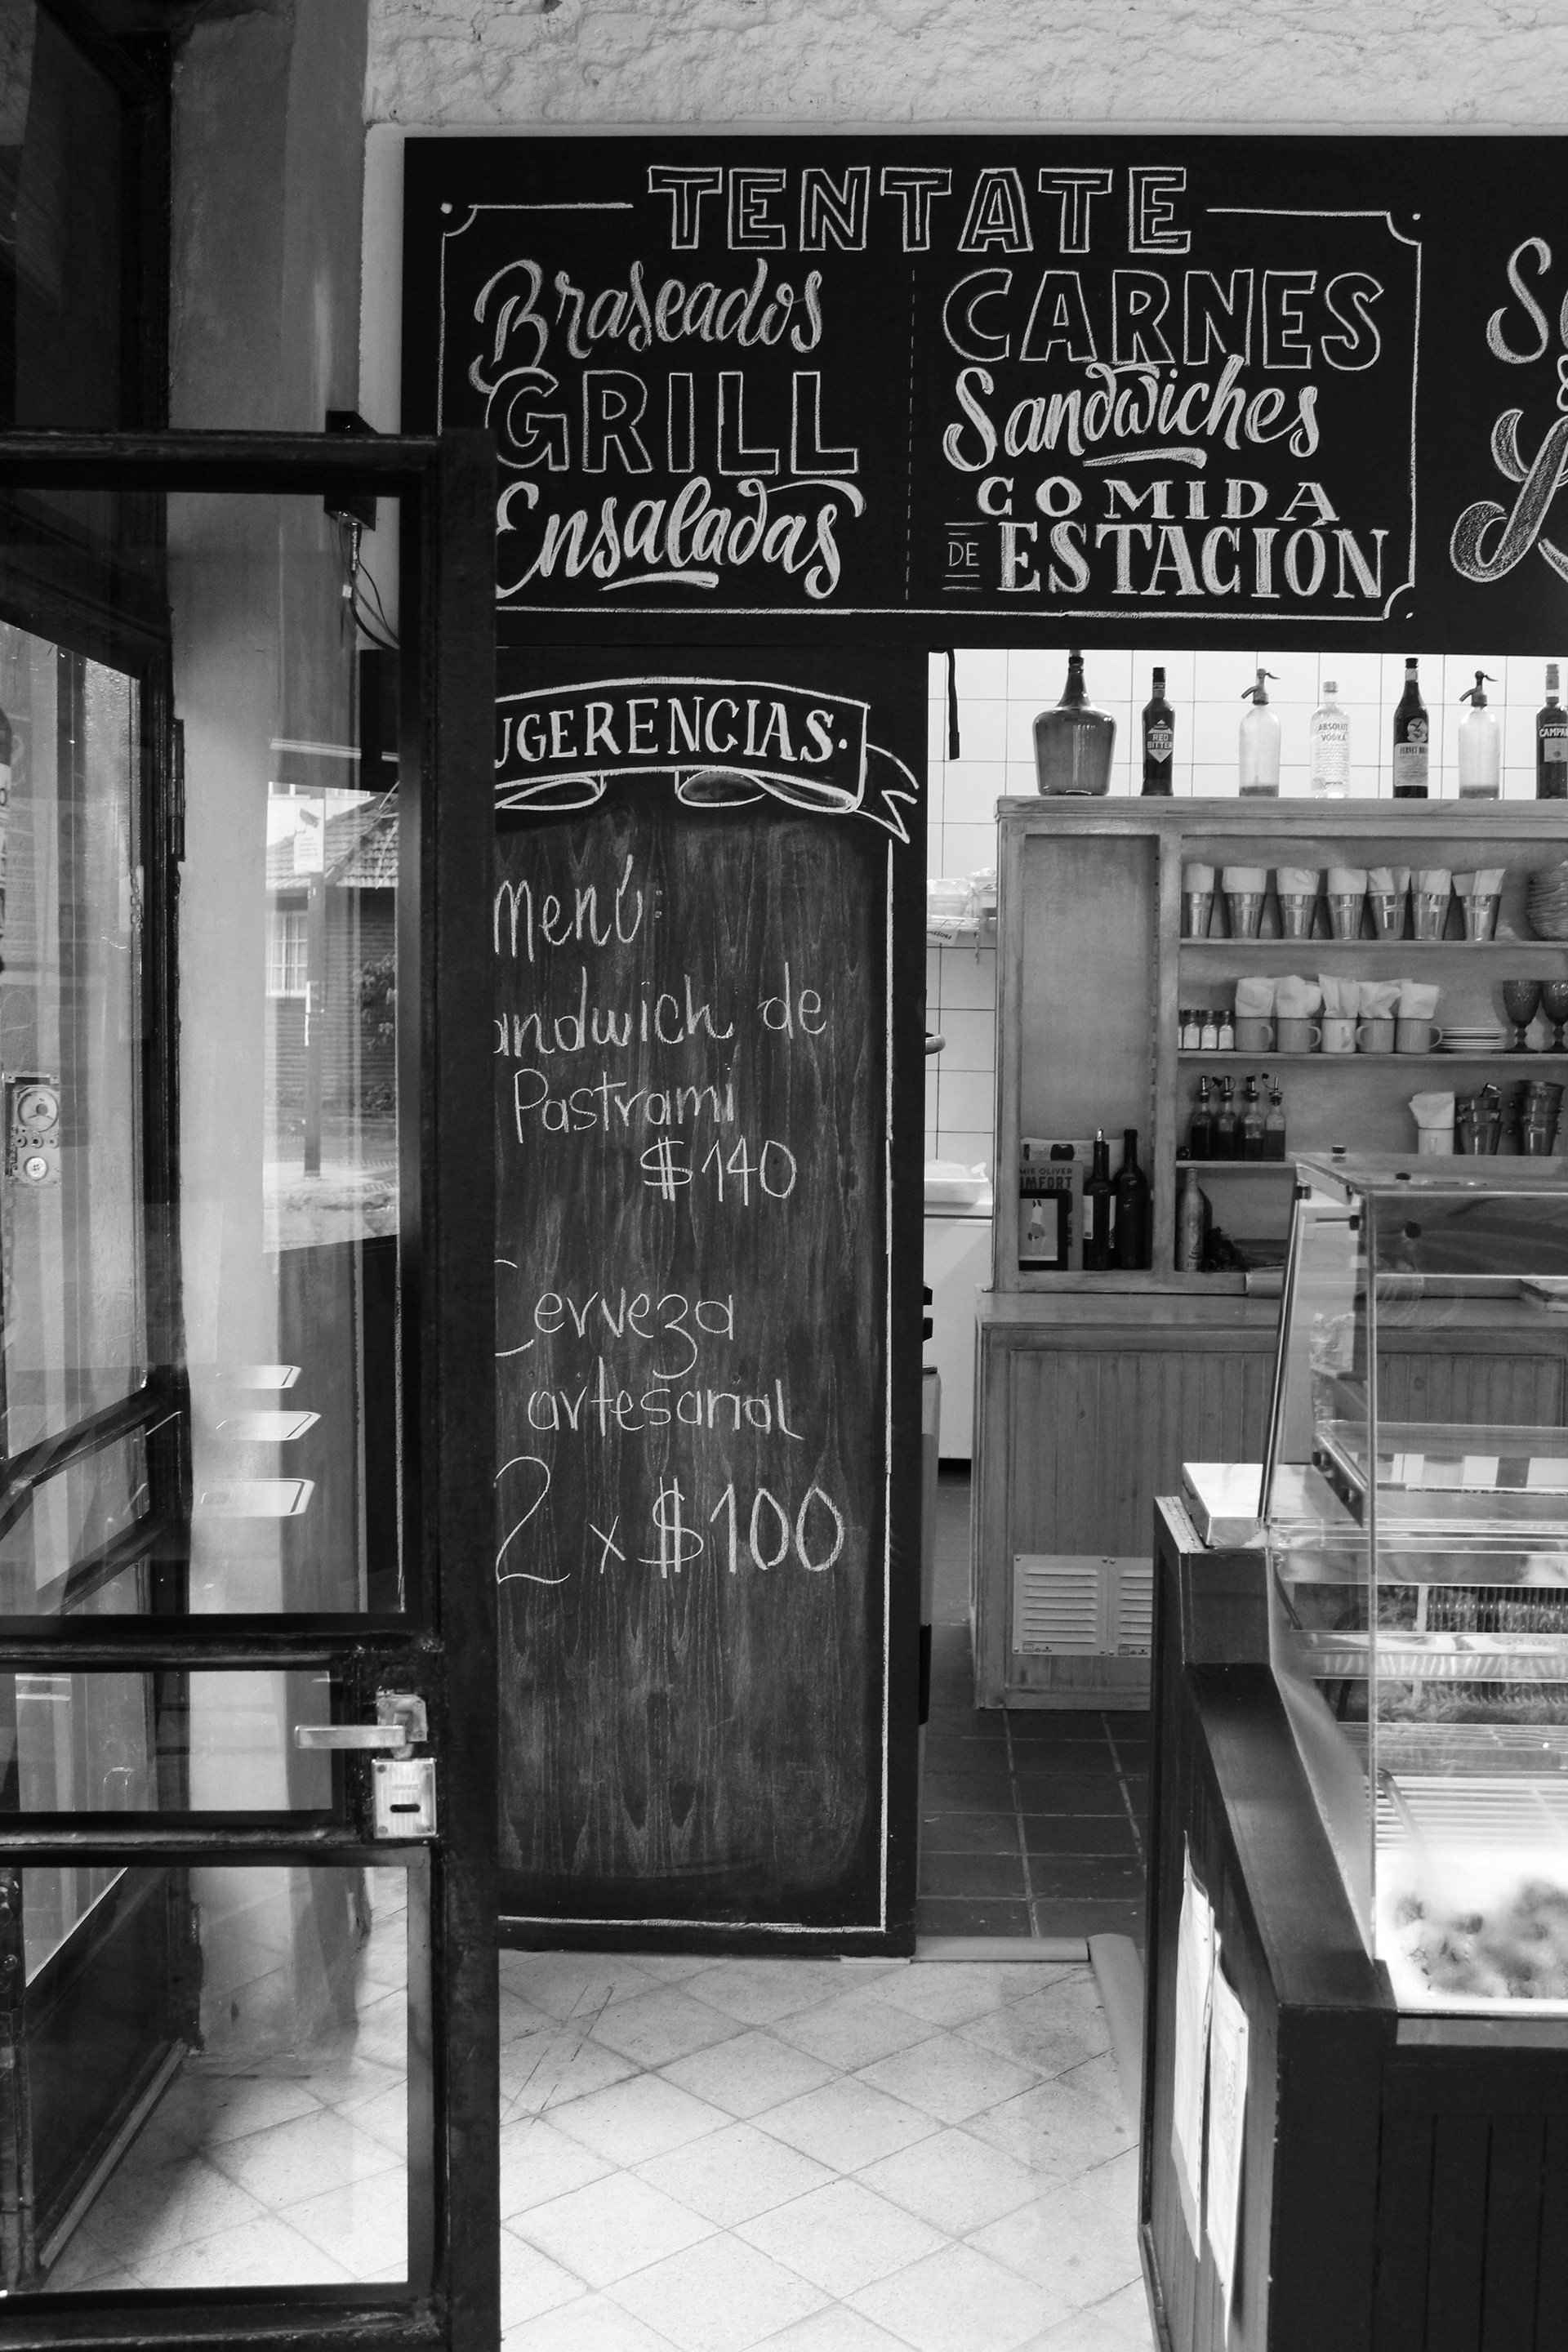 TENTATE
Braseados
GRILL
Ensaladas
CARNES
Sandwiches
COMIDA
DE ESTACIÓN
UGERENCIAS.
Menú:
andwich de
Pastrami
$140
Cerveza
artesanal
2 x $100
RED
BITTER
ABSOLUT
VODKA
FERNET
CAMPA
MIE OLIVER
MFORT